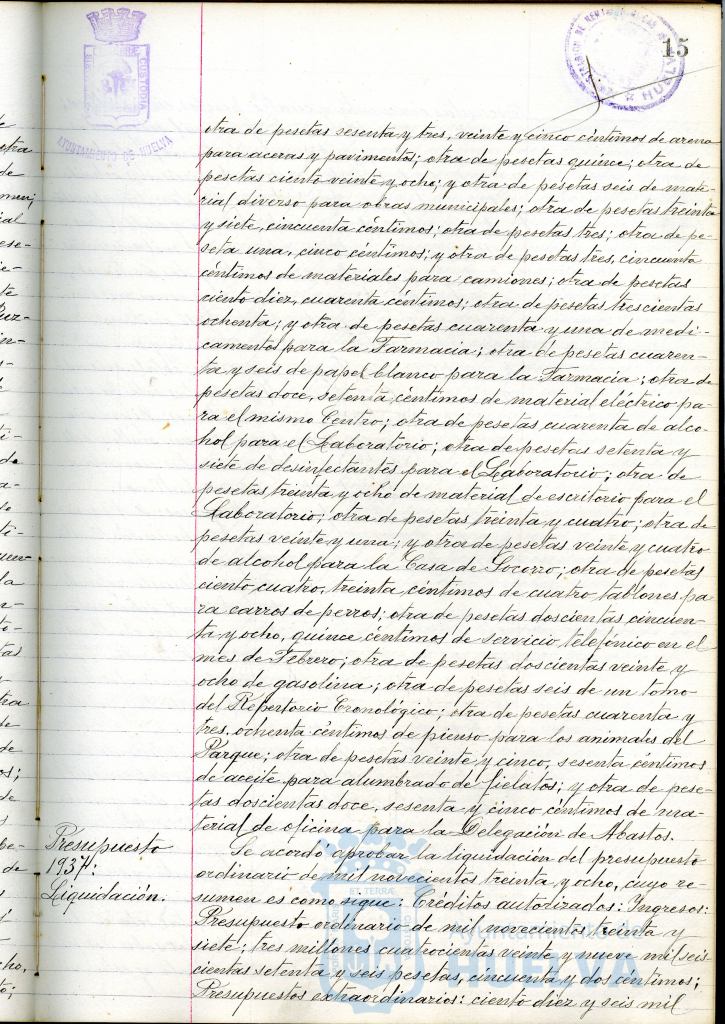 15
AYUNTAMIENTO DE HUELVA
otra de pesetas sesenta y tres, veinte y cinco céntimos de arena
para aceras y pavimentos; otra de pesetas quince; otra de
pesetas ciento veinte y ocho; y otra de pesetas seis de mate-
rial diverso para obras municipales; otra de pesetas treinta
y siete, cincuenta céntimos; otra de pesetas tres; otra de pe-
seta una, cinco céntimos; y otra de pesetas tres, cincuenta
céntimos de materiales para camiones; otra de pesetas
ciento diez, cuarenta céntimos; otra de pesetas trescientas
ochenta; y otra de pesetas cuarenta y una de medi-
camentos para la Farmacia; otra de pesetas cuaren-
ta y seis de papel blanco para la Farmacia; otra de
pesetas doce, setenta céntimos de material eléctrico pa
ra el mismo Centro; otra de pesetas cuarenta de alco-
hol para el Laboratorio; otra de pesetas setenta y
siete de desinfectantes para el Laboratorio; otra de
pesetas treinta y ocho de material de escritorio para el
Laboratorio; otra de pesetas treinta y cuatro; otra de
pesetas veinte y una; y otra de pesetas veinte y cuatro
de alcohol para la Casa de Socorro; otra de pesetas
ciento cuatro, treinta céntimos de cuatro tablones pa
ra carros de perros; otra de pesetas doscientas cincuen-
ta y ocho, quince céntimos de servicio telefónico en el
mes de Febrero; otra de pesetas doscientas veinte y
ocho de gasolina; otra de pesetas seis de un tomo
del Repertorio Cronológico; otra de pesetas cuarenta y
tres, ochenta céntimos de pienso para los animales del
Parque; otra de pesetas veinte y cinco, sesenta céntimos
de aceite para alumbrado de fielatos; y otra de pese-
tas doscientas doce, sesenta y cinco céntimos de ma-
terial de oficina para la Delegación de Abastos.
Presupuesto
1937:
Liquidación.
Se acordó aprobar la liquidación del presupuesto
ordinario de mil novecientos treinta y ocho, cuyo re-
sumen es como sigue: Créditos autorizados: Ingresos:
Presupuesto ordinario de mil novecientos treinta y
siete; tres millones cuatrocientas veinte y nueve mil seis-
cientas setenta y seis pesetas, cincuenta y dos céntimos;
Presupuestos extraordinarios: ciento diez y seis mil
Ayuntamiento de
HUELVA